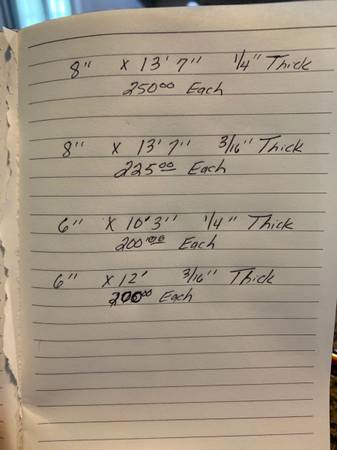 8" x 13' 7" 1/4" Thick
250⁰⁰ Each
8" x 13' 7" 3/16" Thick
225⁰⁰ Each
6" x 10' 3" 1/4" Thick
200⁰⁰ Each
6" x 12' 3/16" Thick
200⁰⁰ Each